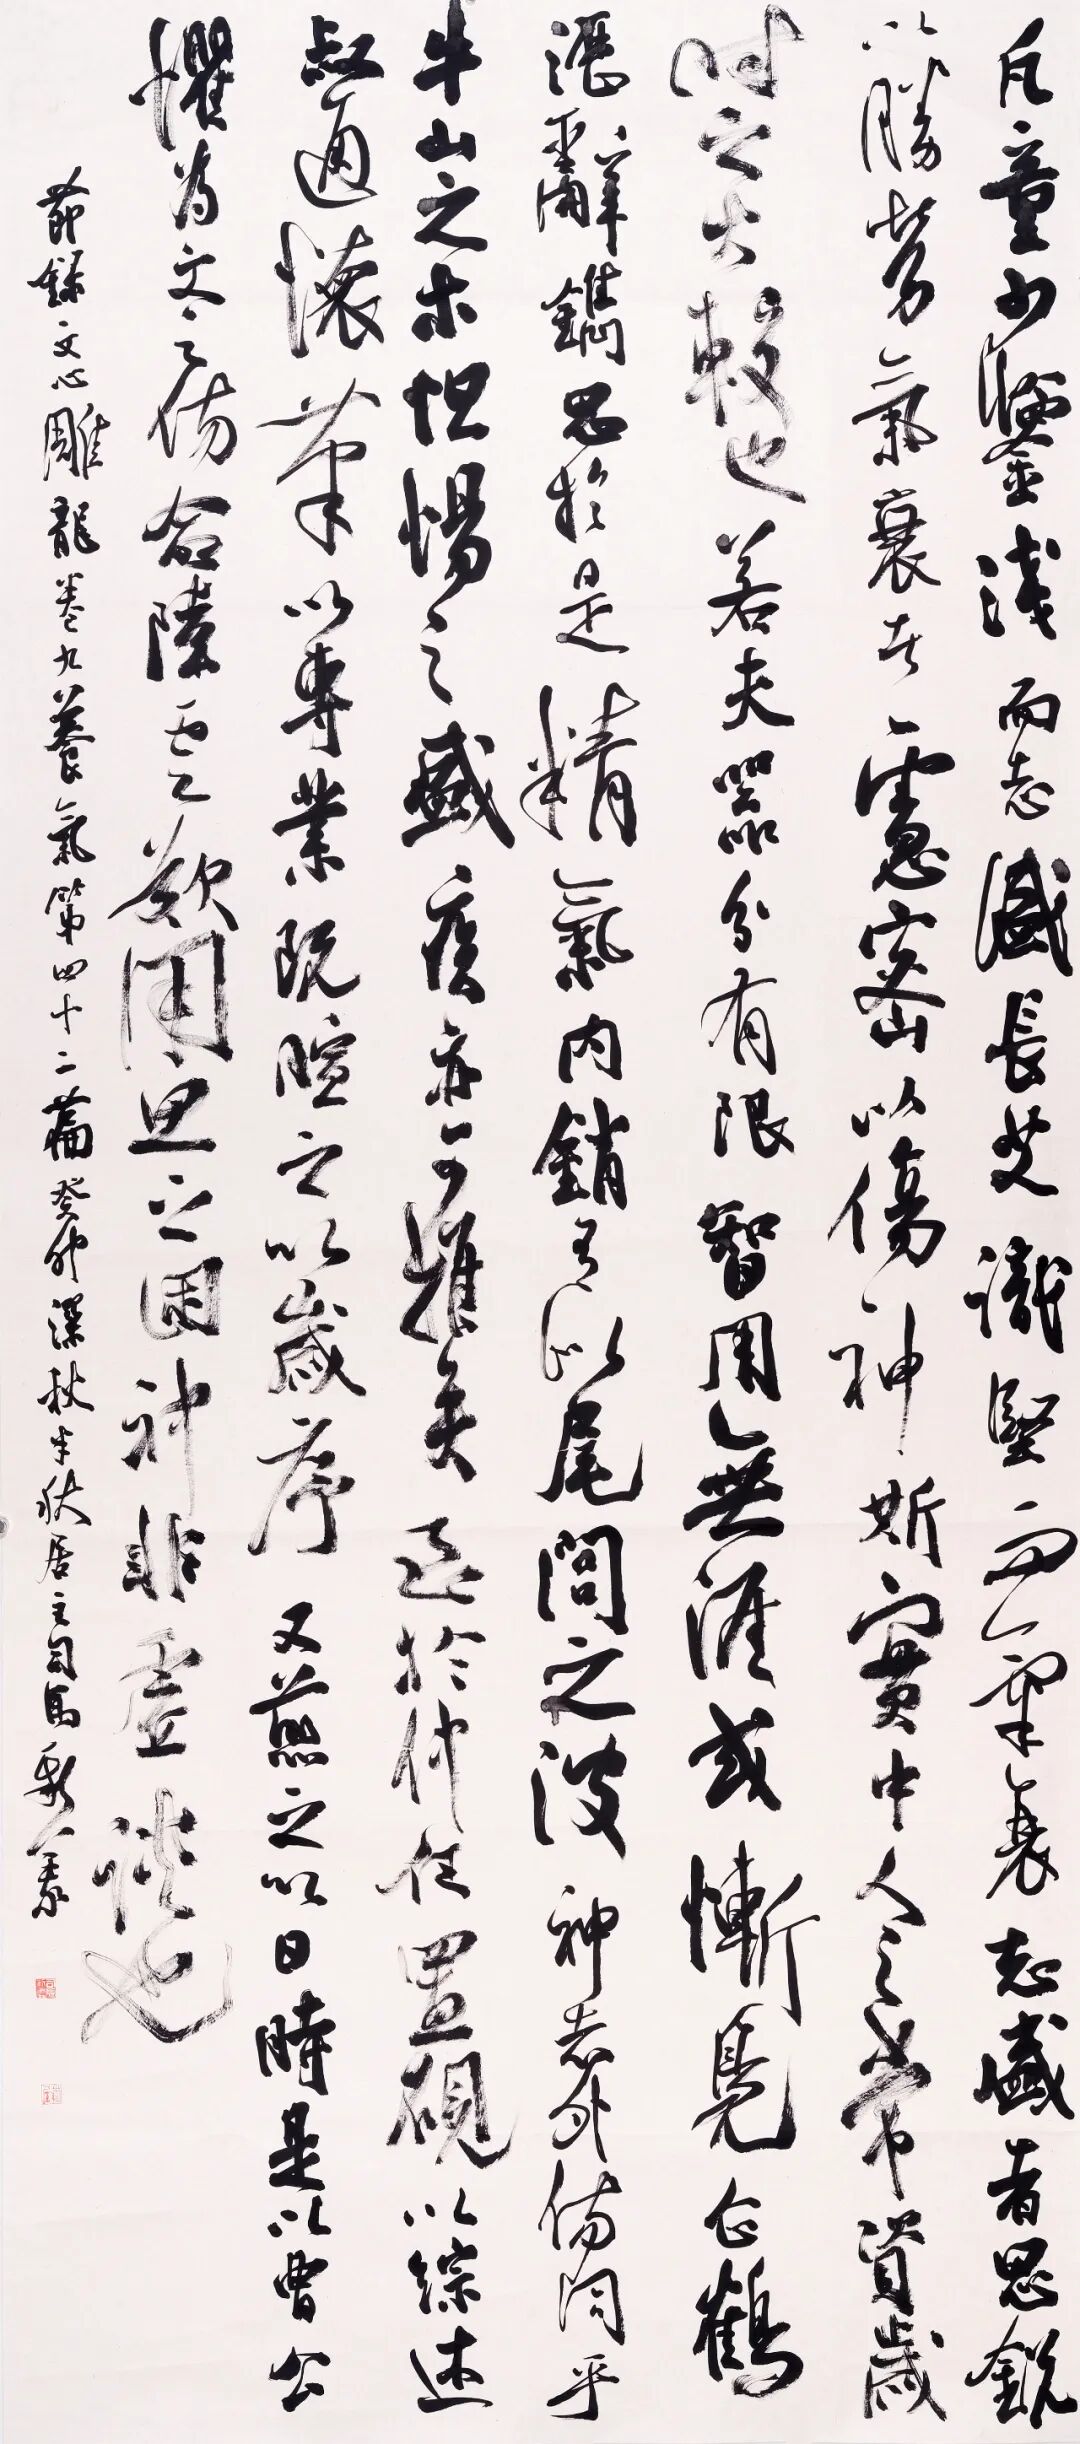 凡童少鑒淺而志盛長艾識堅而氣衰志盛者思銳
以勝勞氣衰者慮密以傷神斯實中人之常資歲
時之大較也若夫器分有限智用無涯或慚鳧企鶴
瀝辭鐫思於是精氣內銷有似尾閭之波神志外傷同乎
牛山之木怛惕之盛疾亦可推矣至於仲任置硯以綜述
叔通懷筆以專業既暄之以歲序又煎之以日時是以曹公
懼為文之傷命陸雲歎用思之困神非虛談也
節錄文心雕龍卷九養氣第四十二篇癸卯深秋半居主司馬